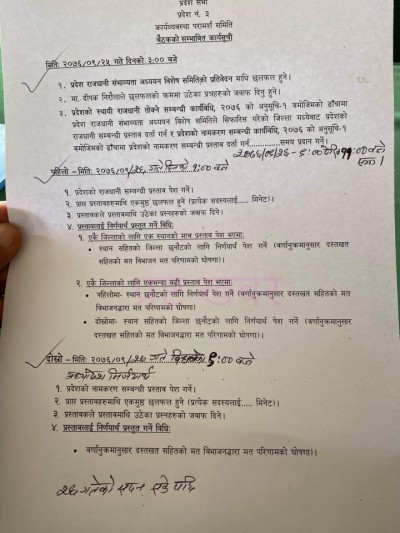 प्रदेश सभा
प्रदेश नं. ३
कार्यव्यवस्था परामर्श समिति
बैठकको सम्भावित कार्यसूची
मितिः २०७६/०९/२५ गते दिनको ३:०० बजे
१. प्रदेश राजधानी संभाव्यता अध्ययन विशेष समितिको प्रतिवेदन माथि छलफल हुने।
२. मा. दीपक निरौलाले छलफलको क्रममा उठेका प्रश्नहरुको जवाफ दिनु हुने।
३. प्रदेशको स्थायी राजधानी तोक्ने सम्बन्धी कार्यविधि, २०७६ को अनुसूची-१ बमोजिमको ढाँचामा
प्रदेश राजधानी संभाव्यता अध्ययन विशेष समितिले सिफारिस गरेको जिल्ला मध्येबाट प्रदेशको
राजधानी सम्बन्धी प्रस्ताव दर्ता गर्न र प्रदेशको नामकरण सम्बन्धी कार्यविधि, २०७६ को अनुसूची-१
बमोजिमको ढाँचामा प्रस्ताव दर्ता गर्न ..............समय प्रदान गर्ने।
२०७६/०९/२६ - ८:०० देखि ११:०० बजे
सम्म।
पहिलो – मितिः २०७६/०९/२६ गते दिनको १:०० बजे
१. प्रदेशको राजधानी सम्बन्धी प्रस्ताव पेश गर्ने।
२. प्राप्त प्रस्तावहरुमाथि एकमुष्ठ छलफल हुने (प्रत्येक सदस्यलाई..... मिनेट)।
३. प्रस्तावकले प्रस्तावमाथि उठेका प्रश्नहरुको जवाफ दिने।
४. प्रस्तावलाई निर्णयार्थ प्रस्तुत गर्ने विधिः
१. एकै जिल्लाको लागि एक स्थानको मात्र प्रस्ताव पेश भएमाः
• स्थान सहितको जिल्ला छनौटको लागि निर्णयार्थ पेश गर्ने (वर्णानुक्रमानुसार दस्तखत
सहितको मत विभाजन मत परिणामको घोषणा)।
२. एकै जिल्लाको एकभन्दा बढी प्रस्ताव पेश भएमाः
• पहिलोमा- स्थान छनौटको लागि निर्णयार्थ पेश गर्ने (वर्णानुक्रमानुसार दस्तखत सहितको मत
विभाजनद्धारा मत परिणामको घोषणा)।
• दोस्रोमा- स्थान सहितको जिल्ला छनौटको लागि निर्णयार्थ पेश गर्ने (वर्णानुक्रमानुसार
दस्तखत सहितको मत विभाजनद्धारा मत परिणामको घोषणा)।
दोस्रो – मितिः २०७६/०९/२७ गते दिनको १:०० बजे
निर्णयार्थ
१. प्रदेशको नामकरण सम्बन्धी प्रस्ताव पेश गर्ने।
२. प्राप्त प्रस्तावहरुमाथि एकमुष्ठ छलफल हुने (प्रत्येक सदस्यलाई..... मिनेट)।
३. प्रस्तावकले प्रस्तावमाथि उठेका प्रश्नहरुको जवाफ दिने।
४. प्रस्तावलाई निर्णयार्थ प्रस्तुत गर्ने विधिः
• वर्णानुक्रमानुसार दस्तखत सहितको मत विभाजनद्धारा मत परिणामको घोषणा)।
२६ गतेको सदन सके पछि